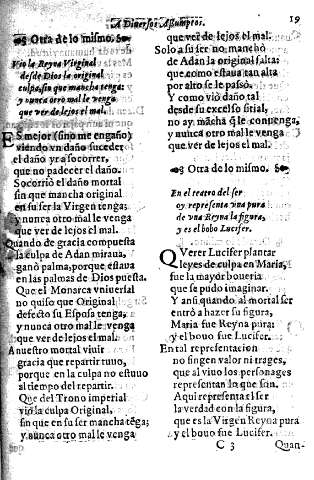 A Diversos Assumptos. 19
Otra de lo mismo.
Vio la Reyna Virginal
desde Dios la original
culpa, sin que mancha tenga:
y nunca otro mal le venga
que ver de lejos el mal.
ES mejor (sino me engaño)
viendo vn daño suceder
el daño yr a socorrer,
que no padecer el daño.
Socorriò el daño mortal
sin que mancha original
en su ser la Virgen tenga;
y nunca otro mal le venga
que ver de lejos el mal.
Quando de gracia compuesta
la culpa de Adan miraua,
ganò palma, porque estaua
en las palmas de Dios puesta.
Que el Monarca vniuersal
no quiso que Original
defecto su Esposa tenga,
y nunca otro mal le venga
que ver de lejos el mal.
A nuestro mortal viuir
gracia que repartir tuuo,
porque en la culpa no estuuo
al tiempo del repartir.
Que del Trono imperial
viò la culpa Original,
sin que en su ser mancha tẽga;
y nunca otro mal le venga
que ver de lejos el mal.
Solo a su ser no manchò
de Adan la original falta:
que como estaua tan alta
por alto se le passò.
Y como viò daño tal
desde su excelso sitial,
no ay mãcha q̃ le conuenga,
y nunca otro mal le venga
que ver de lejos el mal.
Otra de lo mismo.
En el teatro del ser
oy representa vna pura
de vna Reyna la figura,
y es el bobo Lucifer.
QVerer Lucifer plantar
leyes de culpa en Maria,
fue la mayor boueria
que se pudo imaginar.
Y ansi quando al mortal ser
entrò a hazer su figura,
Maria fue Reyna pura:
y el bouo fue Lucifer.
En tal representacion
no fingen valor ni trages,
que al viuo los personages
representan lo que son.
Aqui representa el ser
la verdad con la figura,
que es la Virgen Reyna pura
y el bouo fue Lucifer.
C 3 Quan-